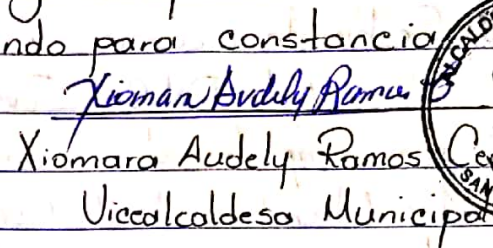 ndo para constancia
Xiomara Audely Ramos
Xiomara Audely Ramos Ce
Viccalcaldesa Municipal
ALCALD
SAN